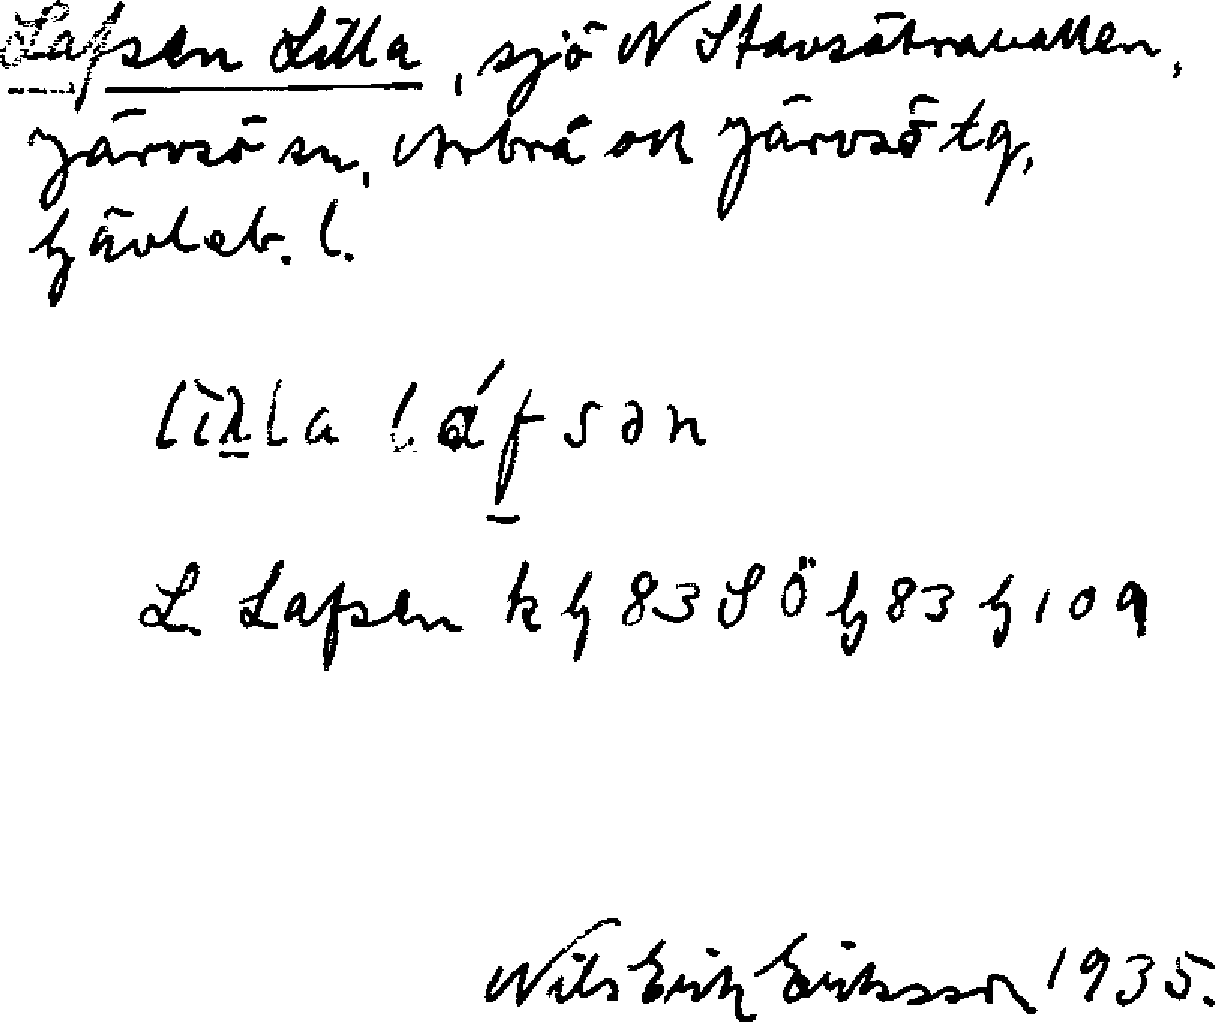 Lafsen Lilla, sjö N Stavsätravallen,
Järvsö sn, Arbrå och Järvsö tg,
Gävleb. l.
lìλla láfsən
L. Lafsen k G 83 S Ö G 83 G 109
Nils Erik Eriksson 1935.